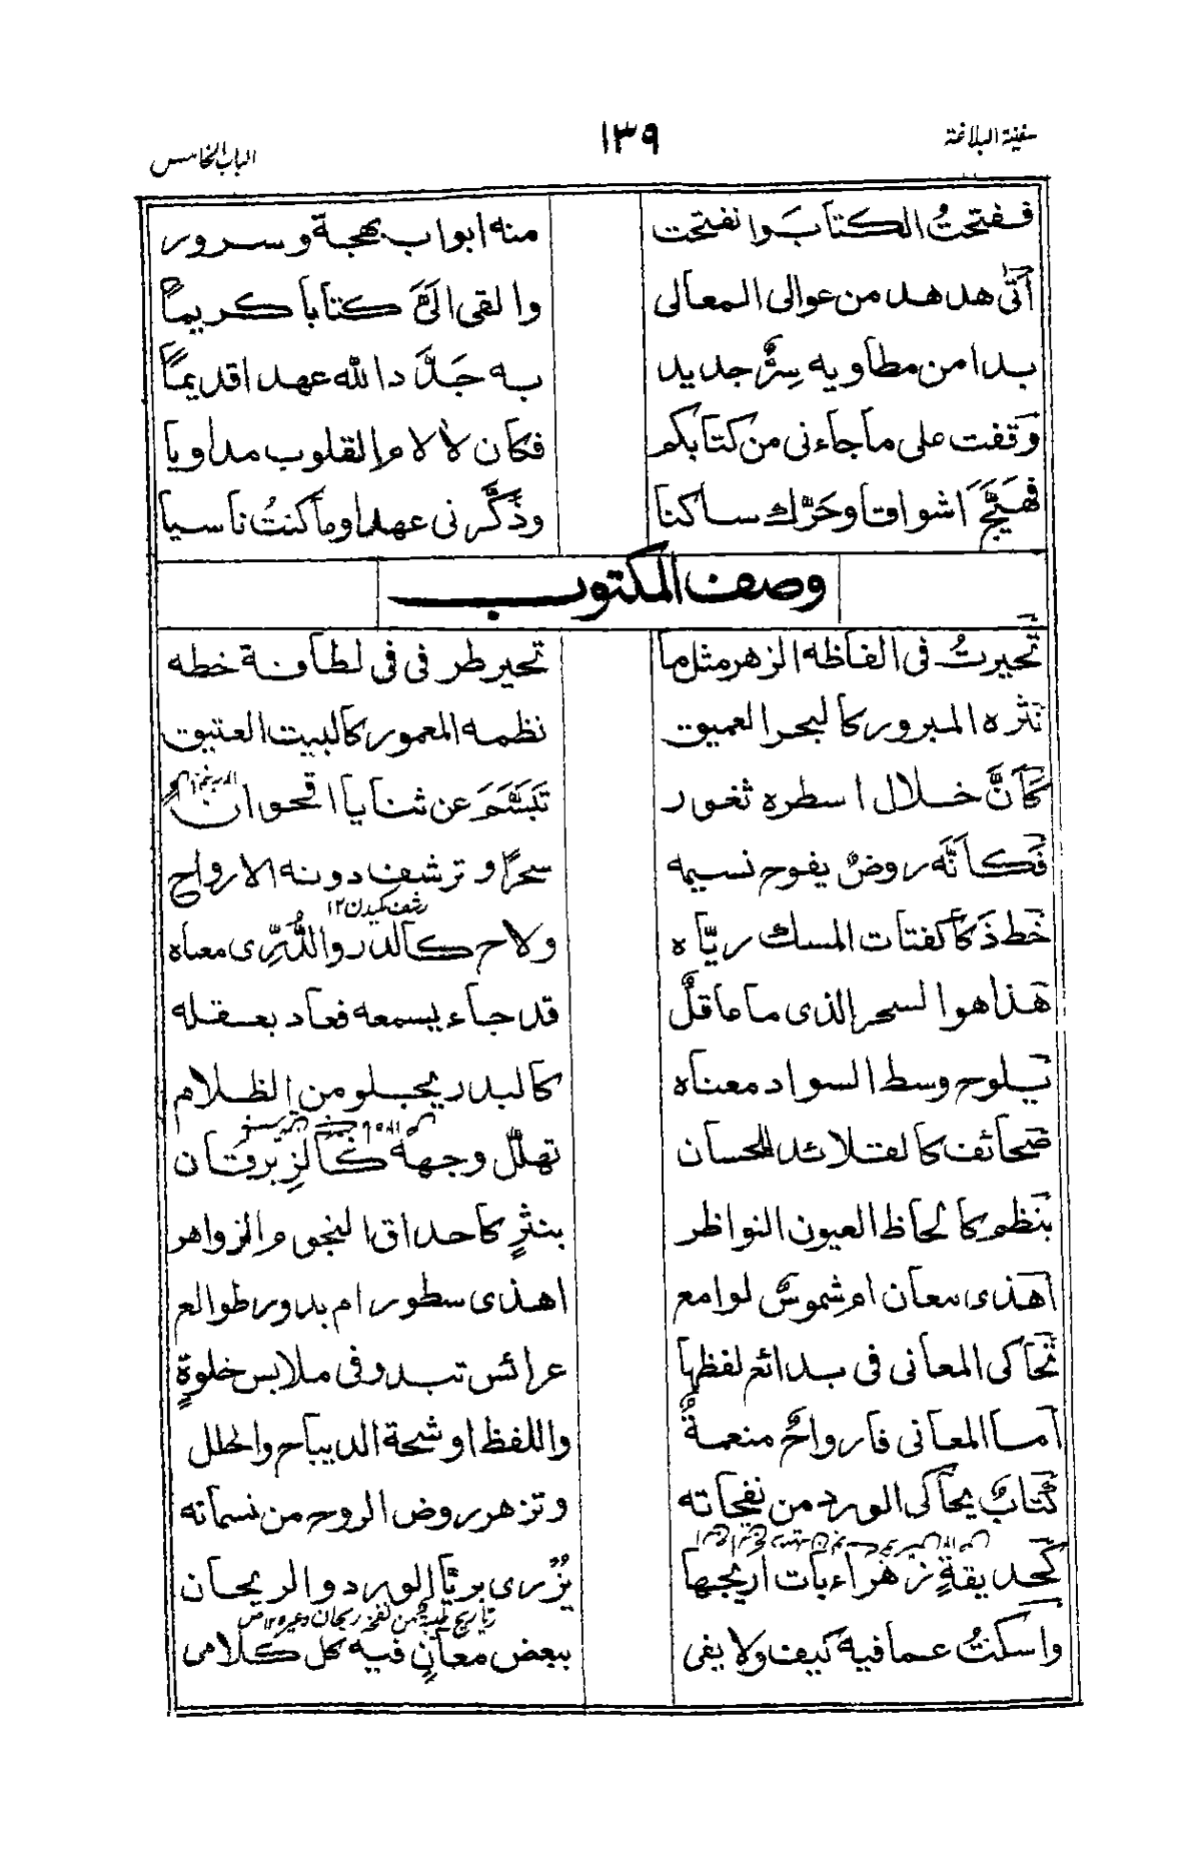 سفينة البلاغة ١٣٩ الباب الخامس
ففتحتُ الكتابَ وانفتحت منه ابواب بهجة وسرور
اَتٰى هدهد من عوالى المعالى والقى الىَّ كتابا كريماً
بدا من مطاويه سِرٌّ جديد به جَدَّد الله عهدا قديماً
وقفت على ما جاءنى من كتابكم فكان لاٰلام القلوب مداويا
فهَيَّجَ اشواقا وحَرَّك ساكنا وذَكَّرنى عهدا وما كنتُ ناسيا
وصف المكتوب
تحيرتُ فى الفاظه الزهر مثل ما تحير طرفى فى لطافة خطه
نثره المبرور كالبحر العميق نظمه المعمور كالبيت العتيق
كأنَّ خلال اسطره ثغور تَبَسَّمَ عن ثنايا اقحوان
فكأنّه روضٌ يفوح نسيمه سحرًا وترشف دونه الارواح
رشف مكيدن ١٢
خط ذكا كفتات المسك ريّاه ولاح كالدر والدُّرِّى معناه
هذا هو السحر الذى ما عاقلٌ قد جاء يسمعه فعاد بعقله
يلوح وسط السواد معناه كالبدر يجلو من الظلام
صحائف كالقلائد للحسان تهلّل وجهه كالزبرقان
بنظم كالحاظ العيون النواظر بنثرٍ كاحداق النجوم الزواهر
اهذى معان ام شموسٌ لوامع اهذى سطور ام بدور طوالع
تحاكى المعانى فى بدائع لفظها عرائس تبدو فى ملابس خلوةٍ
اما المعانى فارواحٌ منعمةٌ واللفظ اوشحة الديباج والحلل
كتابٌ يحاكى الورد من نفحاته وتزهر روض الروح من نسماته
كحديقةٍ زهراء بات اريجها يُزْرى بريّا الورد والريحان
واسكتُ عما فيه كيف ولا يفى ببعض معانٍ فيه كل كلامى